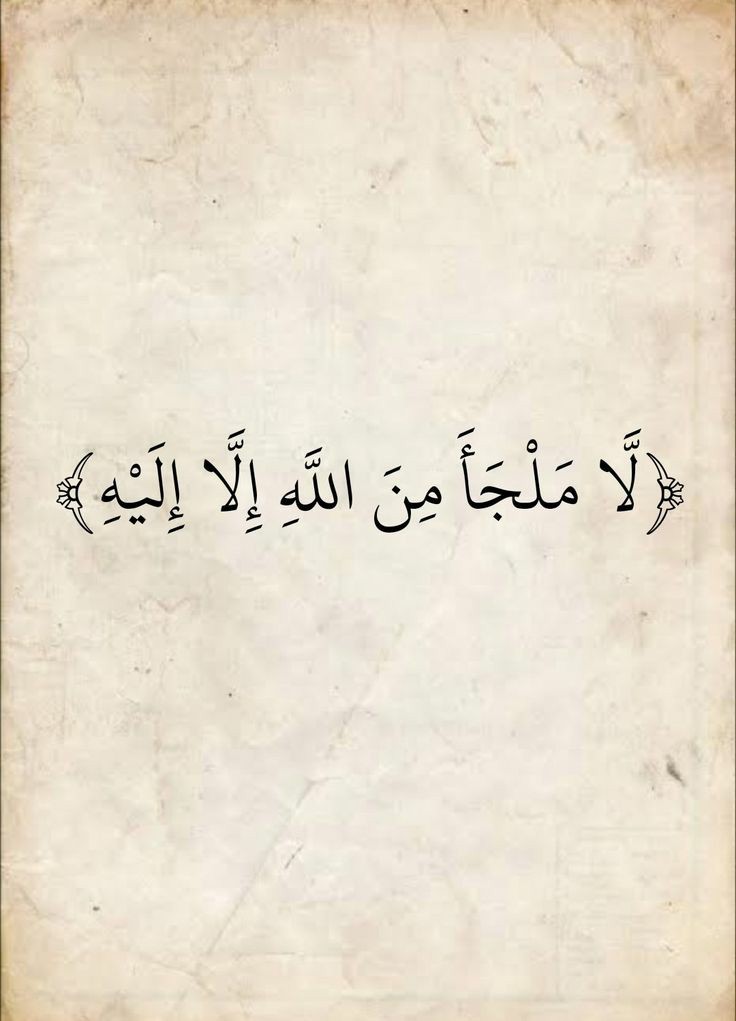 ﴿لَّا مَلْجَأَ مِنَ اللَّهِ إِلَّا إِلَيْهِ﴾